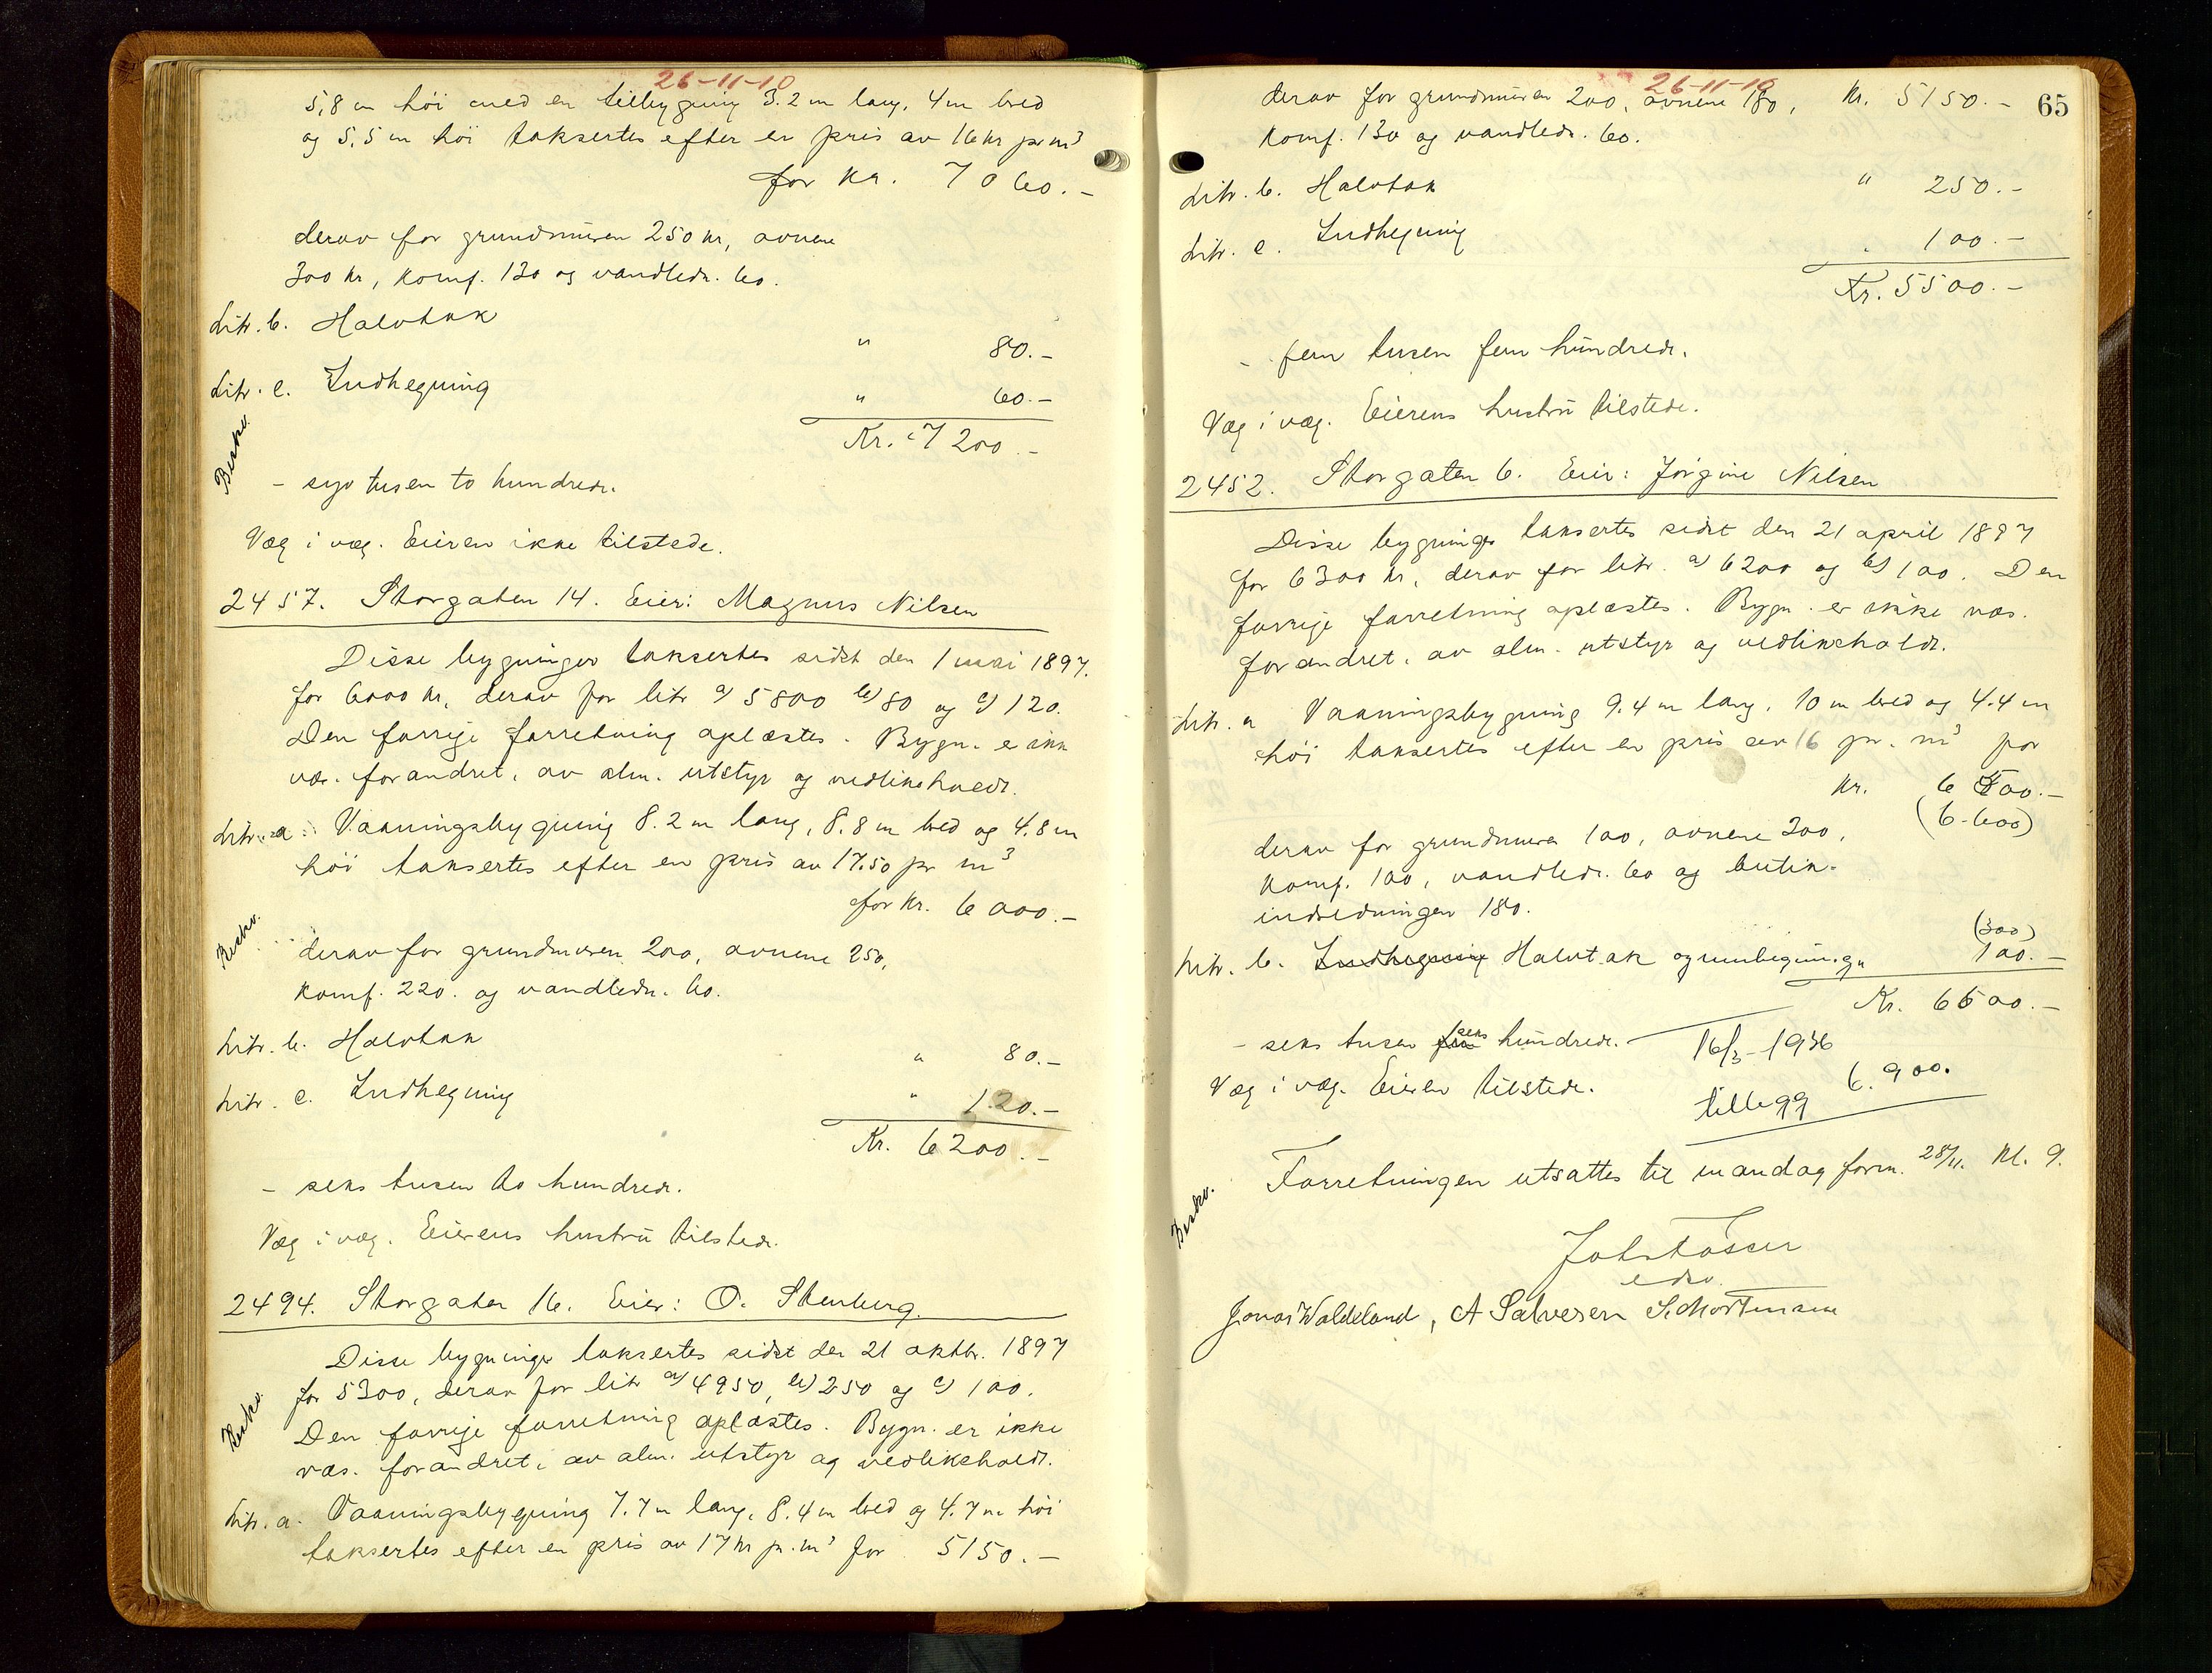 26-11-10
5,8 m höi med en tilbygning 3.2 m lang, 4 m bred
og 5,5 m höi taksertes efter en pris av 16 kr pr m³
for kr. 7060.-
derav for grundmuren 250 kr, ovnene
300 kr, komf. 130 og vandledn. 60.
Litr. b. Halvtak " 80.-
Litr. c. Indhegning " 60.-
Kr. 7200.-
Beskv.
- syv tusen to hundrede.
Væg i væg. Eieren ikke tilstede.
2457. Storgaten 14. Eier: Magnus Nilsen
Disse bygninger taksertes sidst den 1 mai 1897.
for 6000 kr, derav for litr a) 5800 b) 80 og c) 120.
Den forrige forretning oplæstes. Bygn. er ikke
væs. forandret, av alm. utstyr og vedlikeholdt.
Litr. a. Vaaningsbygning 8.2 m lang, 8.8 m bred og 4.8 m
höi taksertes efter en pris av 17.50 pr m³
for Kr. 6000.-
Beskv.
derav for grundmuren 200, ovnene 250,
komf. 220. og vandledn. 60.
Litr. b. Halvtak " 80.-
Litr. c. Indhegning " 120.-
Kr. 6200.-
- seks tusen to hundrede.
Væg i væg. Eierens hustru tilstede.
2494. Storgaten 16. Eier: O. Stenberg.
Disse bygninger taksertes sidst den 21 oktbr. 1897
for 5300, derav for litr a) 4950, b) 250 og c) 100.
Beskv.
Den forrige forretning oplæstes. Bygn. er ikke
væs. forandret, av alm. utstyr og vedlikeholdt.
Litr. a. Vaaningsbygning 7.7 m lang, 8.4 m bred og 4.7 m höi
taksertes efter en pris av 17 kr pr. m³ for 5150.-
26-11-10
65
derav for grundmuren 200, ovnene 180, Kr. 5150.-
komf. 130 og vandledn. 60.
Litr. b. Halvtak " 250.-
Litr. c. Indhegning . 100.-
Kr. 5500.-
- fem tusen fem hundrede.
Væg i væg. Eierens hustru tilstede.
2452. Storgaten 6. Eier: Jörgine Nilsen
Disse bygninger taksertes sidst den 21 april 1897
for 6300 kr, derav for litr. a) 6200 og b) 100. Den
forrige forretning oplæstes. Bygn. er ikke væs.
forandret, av alm. utstyr og vedlikeholdt.
Litr. a Vaaningsbygning 9.4 m lang, 10 m bred og 4.4 m
höi taksertes efter en pris av 16 pr. m³ for
Kr. 6500.-
(6.600)
derav for grundmuren 100, ovnene 200,
komf. 100, vandledn. 60 og butik-
indredningen 180.
(300)
Litr. b. Indhegning Halvtak og innhegning " 100.-
Kr. 6600.-
- seks tusen fem seks hundrede. 16/3-1936
6.900.
Væg i væg. Eieren tilstede. tillegg
Forretningen utsattes til mandag form. 28/11. kl. 9.
Beskv.
Joh. Kösser
edsv.
Jonas Waldeland, A Salvesen S. Mortensen